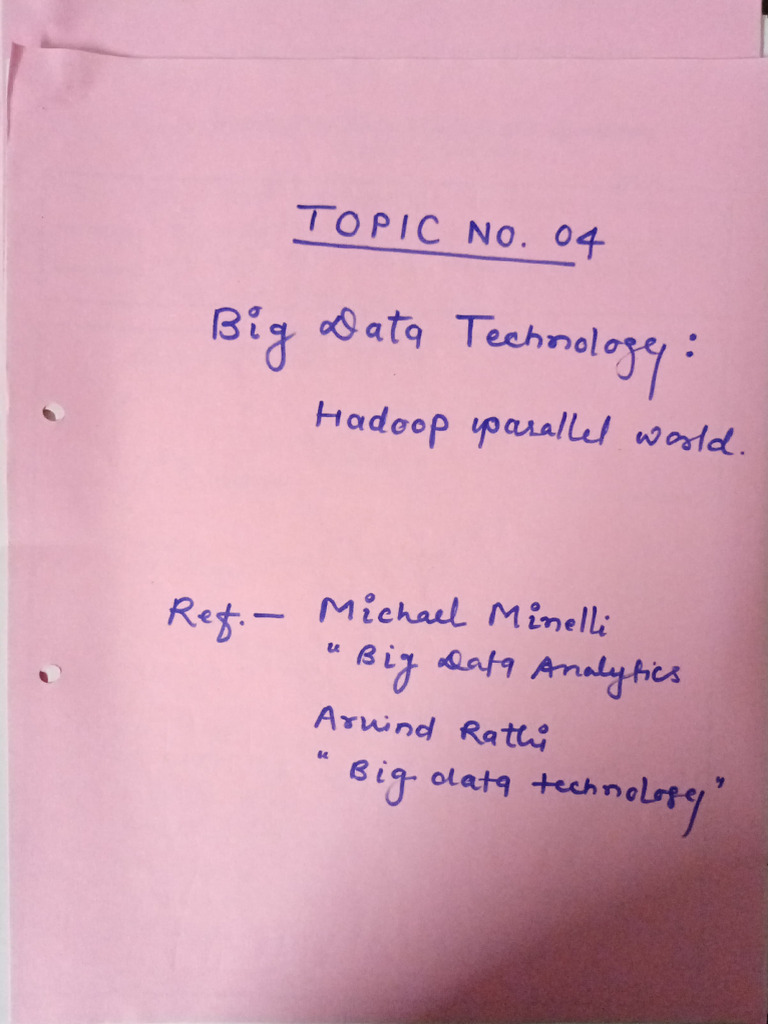 TOPIC NO. 04
Big Data Technology :
Hadoop parallel world.
Ref. - Michael Minelli
" Big Data Analytics
Arvind Rathi
" Big data technology"